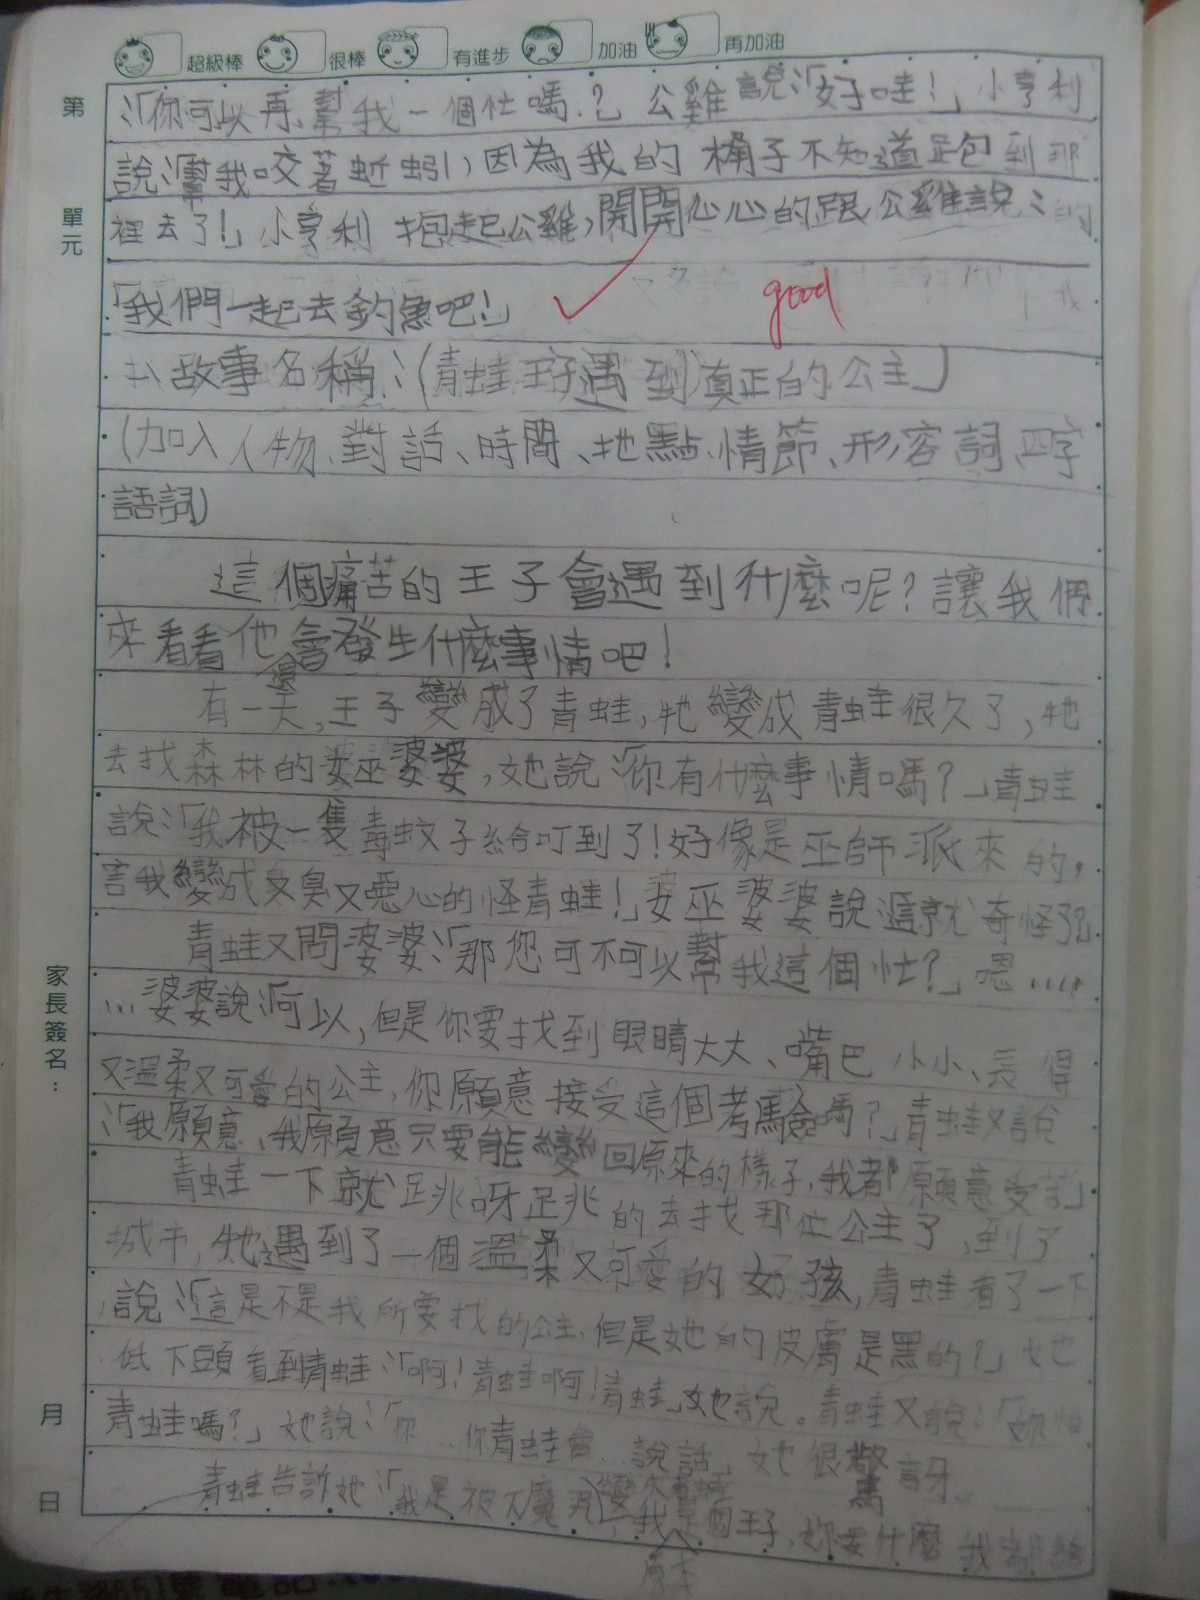 超級棒 很棒 有進步 加油 再加油
第
單元
家長簽名：
月
日
：「你可以再幫我一個忙嗎？公雞說：「好哇！」小亨利
說：「幫我咬著蚯蚓，因為我的桶子不知道跑到那
裡去了！」小亨利抱起公雞，開開心心的跟公雞說：
「我們一起去釣魚吧！」
good
故事名稱：(青蛙王子遇到真正的公主」
(加入人物、對話、時間、地點、情節、形容詞、四字
語詞)
這個痛苦的王子會遇到什麼呢？讓我們
來看看他會發生什麼事情吧！
有一天，王子變成了青蛙，牠變成青蛙很久了，牠
去找森林的婆巫婆婆，她說：「你有什麼事情嗎？」青蛙
說：「我被一隻毒蚊子給叮到了！好像是巫師派來的，
害我變成臭臭又噁心的怪青蛙！」婆巫婆婆說：「這就奇怪了。」
青蛙又問婆婆：「那您可不可以幫我這個忙？」嗯....
...婆婆說：「可以，但是你要找到眼睛大大、嘴巴小小、長得
又溫柔又可愛的公主，你願意接受這個考驗嗎？」青蛙又說
：「我願意、我願意只要能變回原來的樣子，我都願意受苦」
青蛙一下就跳呀跳的去找那位公主了，到了
城市，牠遇到了一個溫柔又可愛的女孩，青蛙看了一下
，說：「這是不是我所要找的公主，但是她的皮膚是黑的？」她
低下頭看到青蛙：「啊！青蛙啊！青蛙」她說。青蛙又說：「妳怕
青蛙嗎？」她說：「你...你青蛙會...說話」她很驚訝。
青蛙告訴她：「我是被 魔 變 我 是個王子，妳要什麼我都給